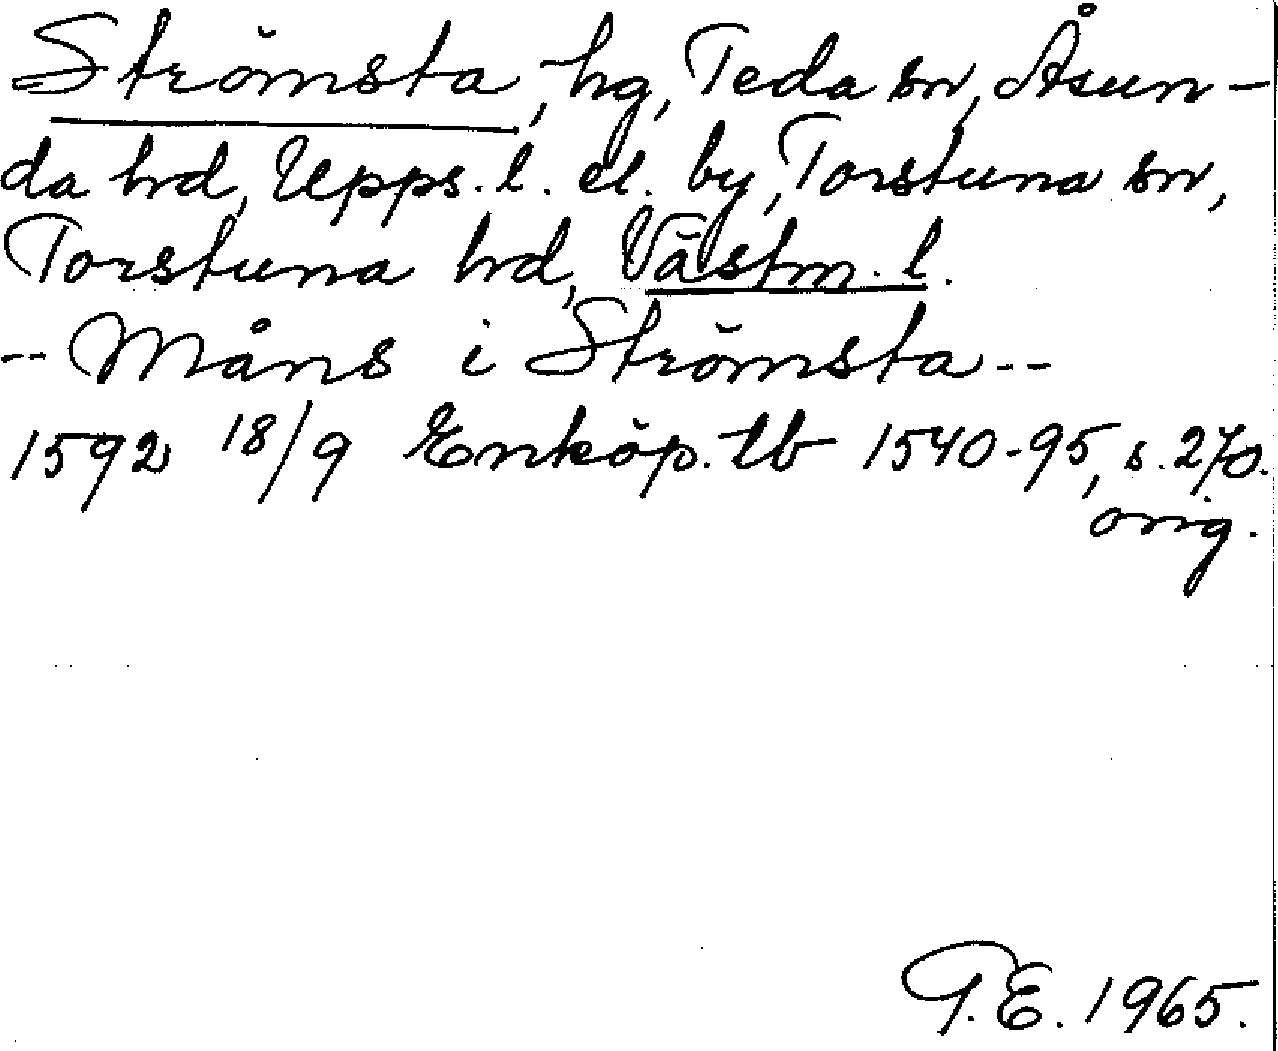 Strömsta, hg, Teda sn, Åsun-
da hrd, Upps. l. el. by, Torstuna sn,
Torstuna hrd, Västm. l.
-- Måns i Strömsta --
1592 18/9 Enköp. tb 1540-95, s. 270.
orig.
T.E. 1965.